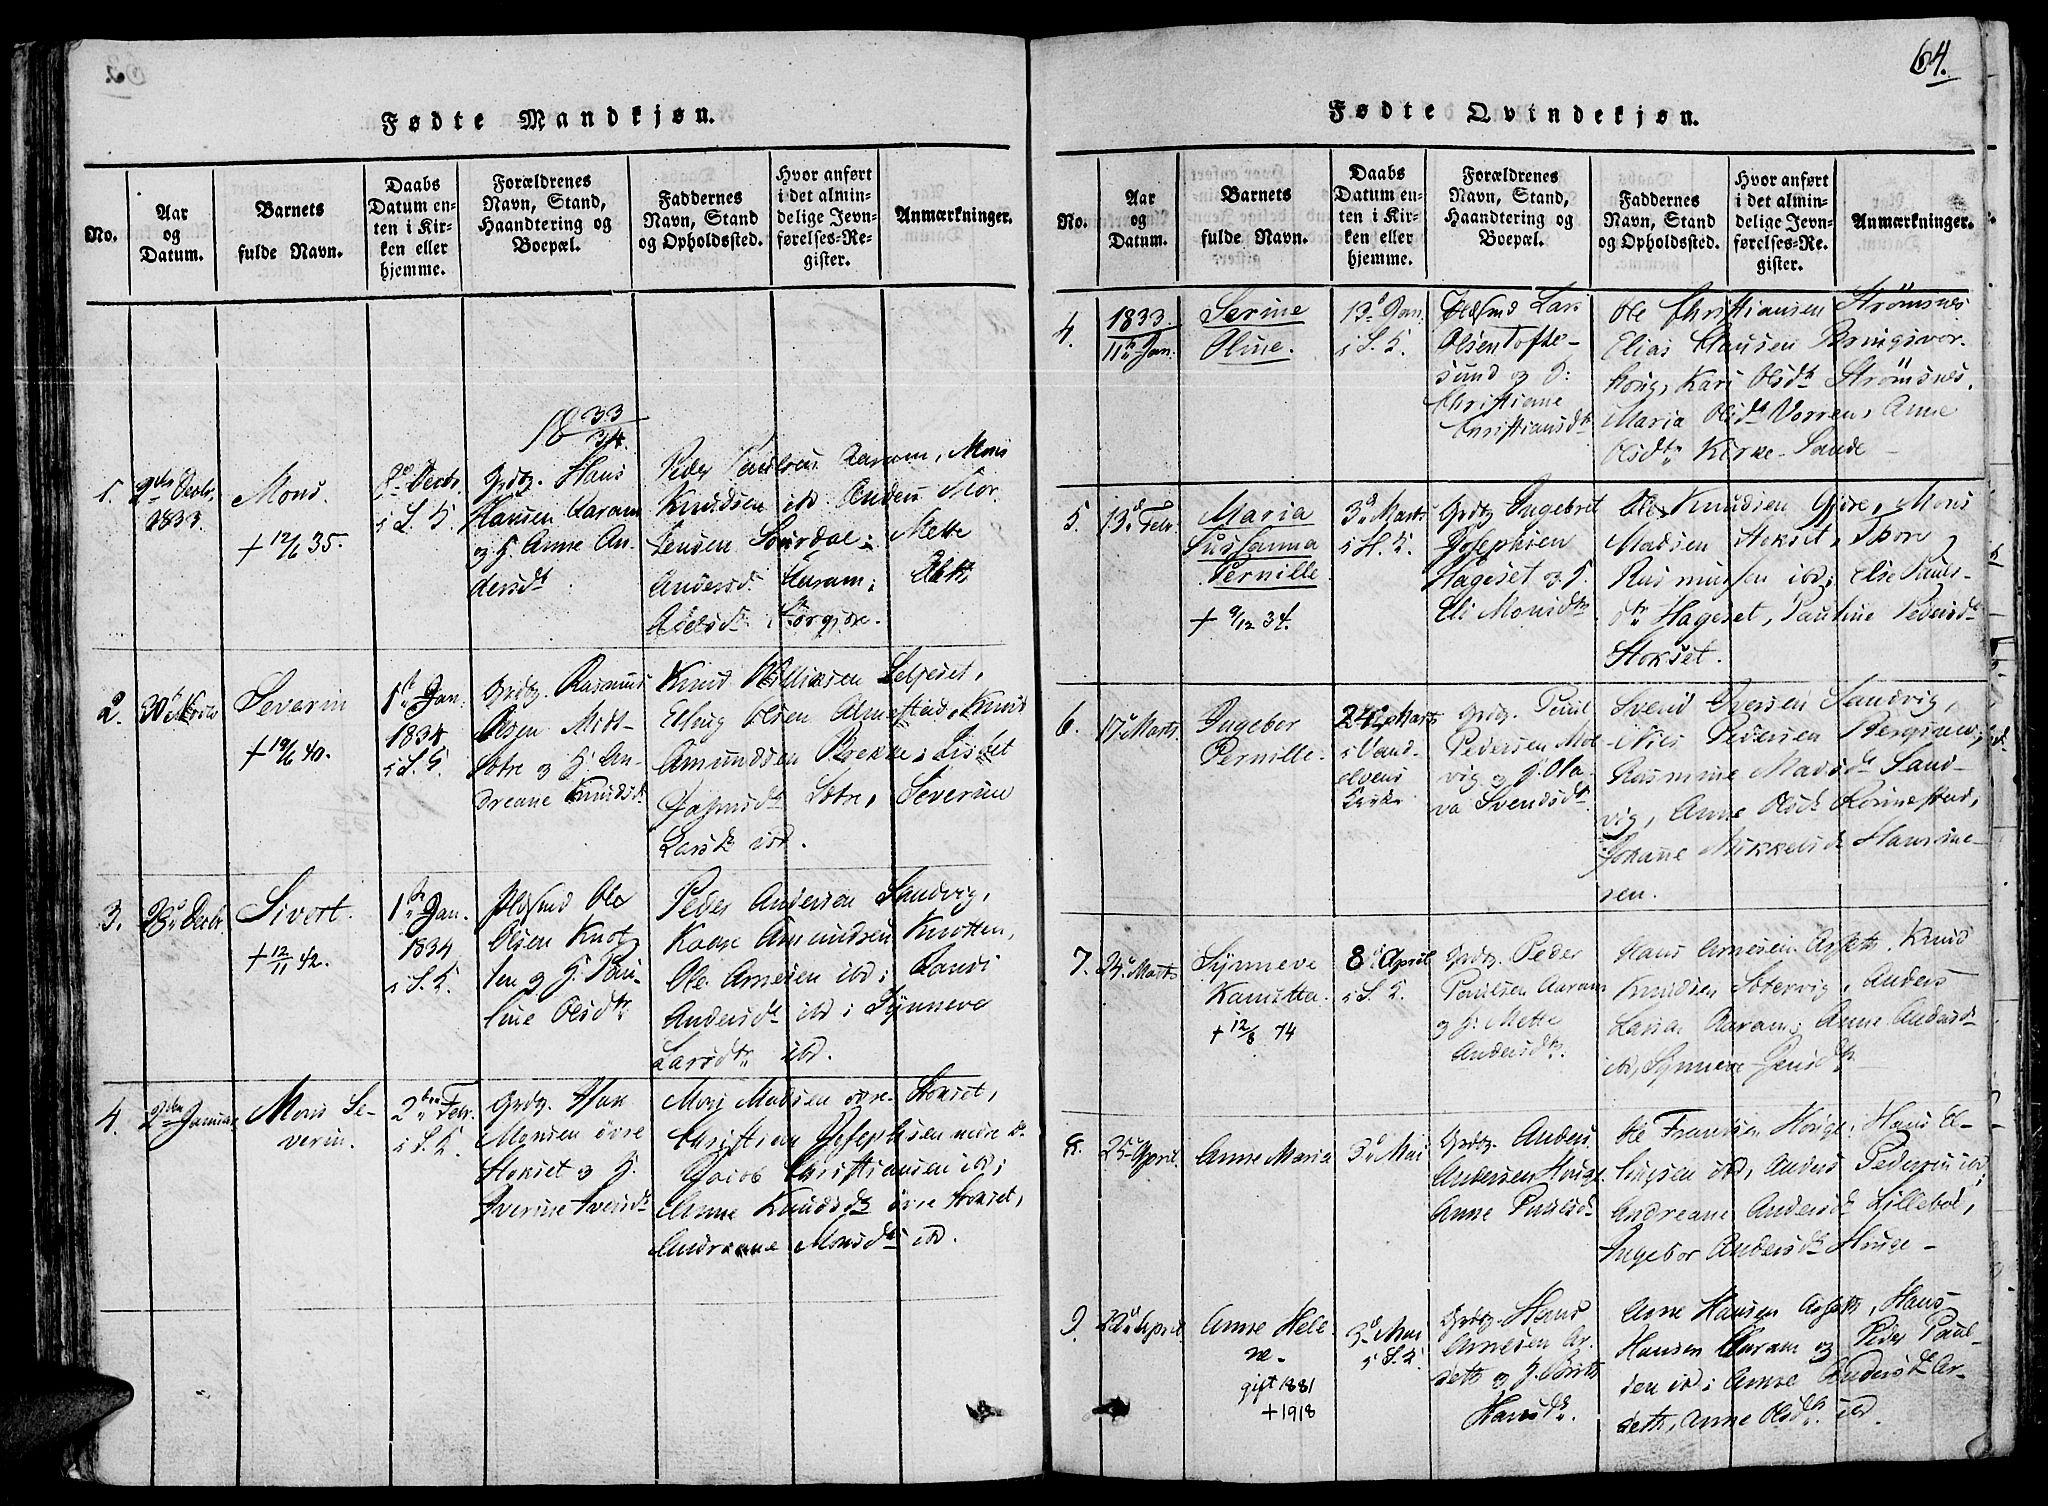 64.
Fødte Mandkjøn.
No.
Aar
og
Datum.
Barnets
fulde Navn.
Daabs
Datum en-
ten i Kir-
ken eller
hjemme.
Forældrenes
Navn, Stand,
Haandtering og
Boepæl.
Faddernes
Navn, Stand
og Opholdssted.
Hvor anført
i det almin-
delige Jevn-
førelses-Re-
gister.
Anmærkninger.
1833
34.
1.
2den Decbr.
1833.
Mons.
+ 12/6 35.
8de Decbr.
i S. K.
Grdbr. Hans
Hansen Aaram
og H. Anne An-
dersdtr
Peder Poulsen Aaram, Mons
Knudsen ibd Anders Mor.
Jensen Sourdal; Mette
Andersd. Aaram;
2.
30te
Severin
+ 19/6 40.
1ste Jan.
1834
i S. K.
Grdbr. Rasmus
Olsen Midt-
Sotre og H. An-
dreane Knudsdtr
Knud Seljeset,
Olsen Almestad, Knud
Amundsen Brekke; Lisbet
Sotre, Severine
Larsdtr ibd.
3.
28de Decbr.
Sivert.
+ 12/11 42.
1ste Jan.
1834
i S. K.
Pladsmd Ole
Olsen Knot
ten og H. Pau-
line Olsdtr
Peder Andersen Sandvig,
Kaare Amundsen Knotten,
Ole Arnesen ibd; Randi
Andersdtr ibd; Synneve
Larsdtr ibd.
4.
2den Januar
Mons Se-
verin.
2den Febr.
i S. K.
Grdbr. Isak
Monsen øvre
Stokset og H.
Iverine Iversdtr
Mons Madsen øvre Stokset,
Christian Josephsen nedre do
Jacob Christiansen ibd;
Anne Knudsdtr øvre Stokset,
Andreane Monsdtr ibd.
Fødte Qvindekjøn.
No.
Aar
og
Datum.
Barnets
fulde Navn.
Daabs
Datum en-
ten i Kir-
ken eller
hjemme.
Forældrenes
Navn, Stand,
Haandtering og
Boepæl.
Faddernes
Navn, Stand
og Opholdssted.
Hvor anført
i det almin-
delige Jevn-
førelses-Re-
gister.
Anmærkninger.
4.
1833
11te Jan.
Serine
Oline.
13de Jan.
i S. K.
Pladsmd Lars
Olsen Tofte-
sund og H:
Christiane
Christiansdtr
Ole Christiansen Strømsnes
Elias Clausen Bringsvor.
Houg, Kari Olsdtr Strømsnes.
Maria Olsdtr Vorren, Anne
Olsdtr Kirke-Sande
5.
13de Febr.
Maria
Susanna
Pernille.
+ 9/12 34.
3de Marts
i S. K.
Grdbr Ingebret
Josephsen
Hageset og H.
Eli Monsdtr
Ole Knudsen Gjøre, Mons
Madsen Stokset, Thore
Rasmussen ibd; Else Pauls-
dtr Hageset, Pauline Pedersdtr
Stokset.
6.
17de Marts
Ingebor
Pernille.
24de Marts
i Vand-
elvens
Kirke
Grdbr. Paul
Pedersen Mol
vig og H. Ola-
va Svendsdtr
Svend Iversen Sandvig,
Nils Pedersen Bergsnev;
Rasmine Madsdtr Sand-
vig, Anne Olsdtr Rønnestad,
Johanne Mikkelsdtr Hansine-
sen.
7.
24de Marts
Synneve
Kanutta.
+ 12/8 74
8de April
i S. K.
Grdbr. Peder
Paulsen Aaram
og H. Mette
Andersdtr.
Hans Arnesen Arseth, Knud
Knudsen Sotervig, Anders
Larsen Aaram; Anne Andersdtr
ibd, Synneve Jensdtr
8.
25de April.
Anne Maria
3de Mai
Grdbr. Anders
Andersen Houge.
Anne Paulsdtr
Ole Fransen Houge; Hans El-
lingsen ibd, Anders Pedersen ibd;
Andreane Andersdtr Lillebø,
Ingebor Andersdtr Houge
9.
22de April
Anne Hele
ne.
gift 1881
+ 1918
3de Mai
i S. K.
Grdbr. Hans
Arnesen Ar
seth og H. Berith
Hansdtr.
Arne Hansen Arseth, Hans
Hansen Aaram og Peder Paul
sen ibd; Anne Andersdtr Ar-
seth, Anne Olsdtr ibd.